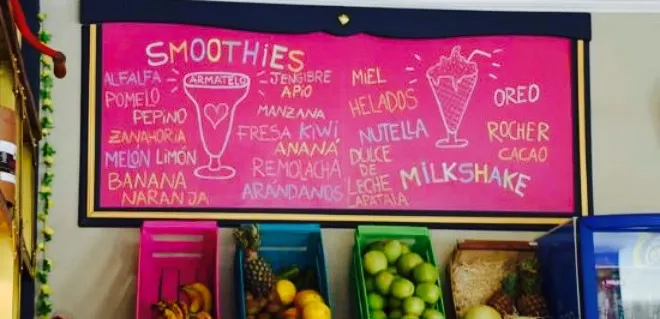 SMOOTHIES
ALFALFA
POMELO
PEPINO
ZANAHORIA
MELÓN LIMÓN
BANANA
NARANJA
ARMATELO
JENGIBRE
APIO
MANZANA
FRESA KIWI
ANANÁ
REMOLACHA
ARÁNDANOS
MIEL
HELADOS
NUTELLA
DULCE
DE
LECHE
LAPATAIA
OREO
ROCHER
CACAO
MILKSHAKE